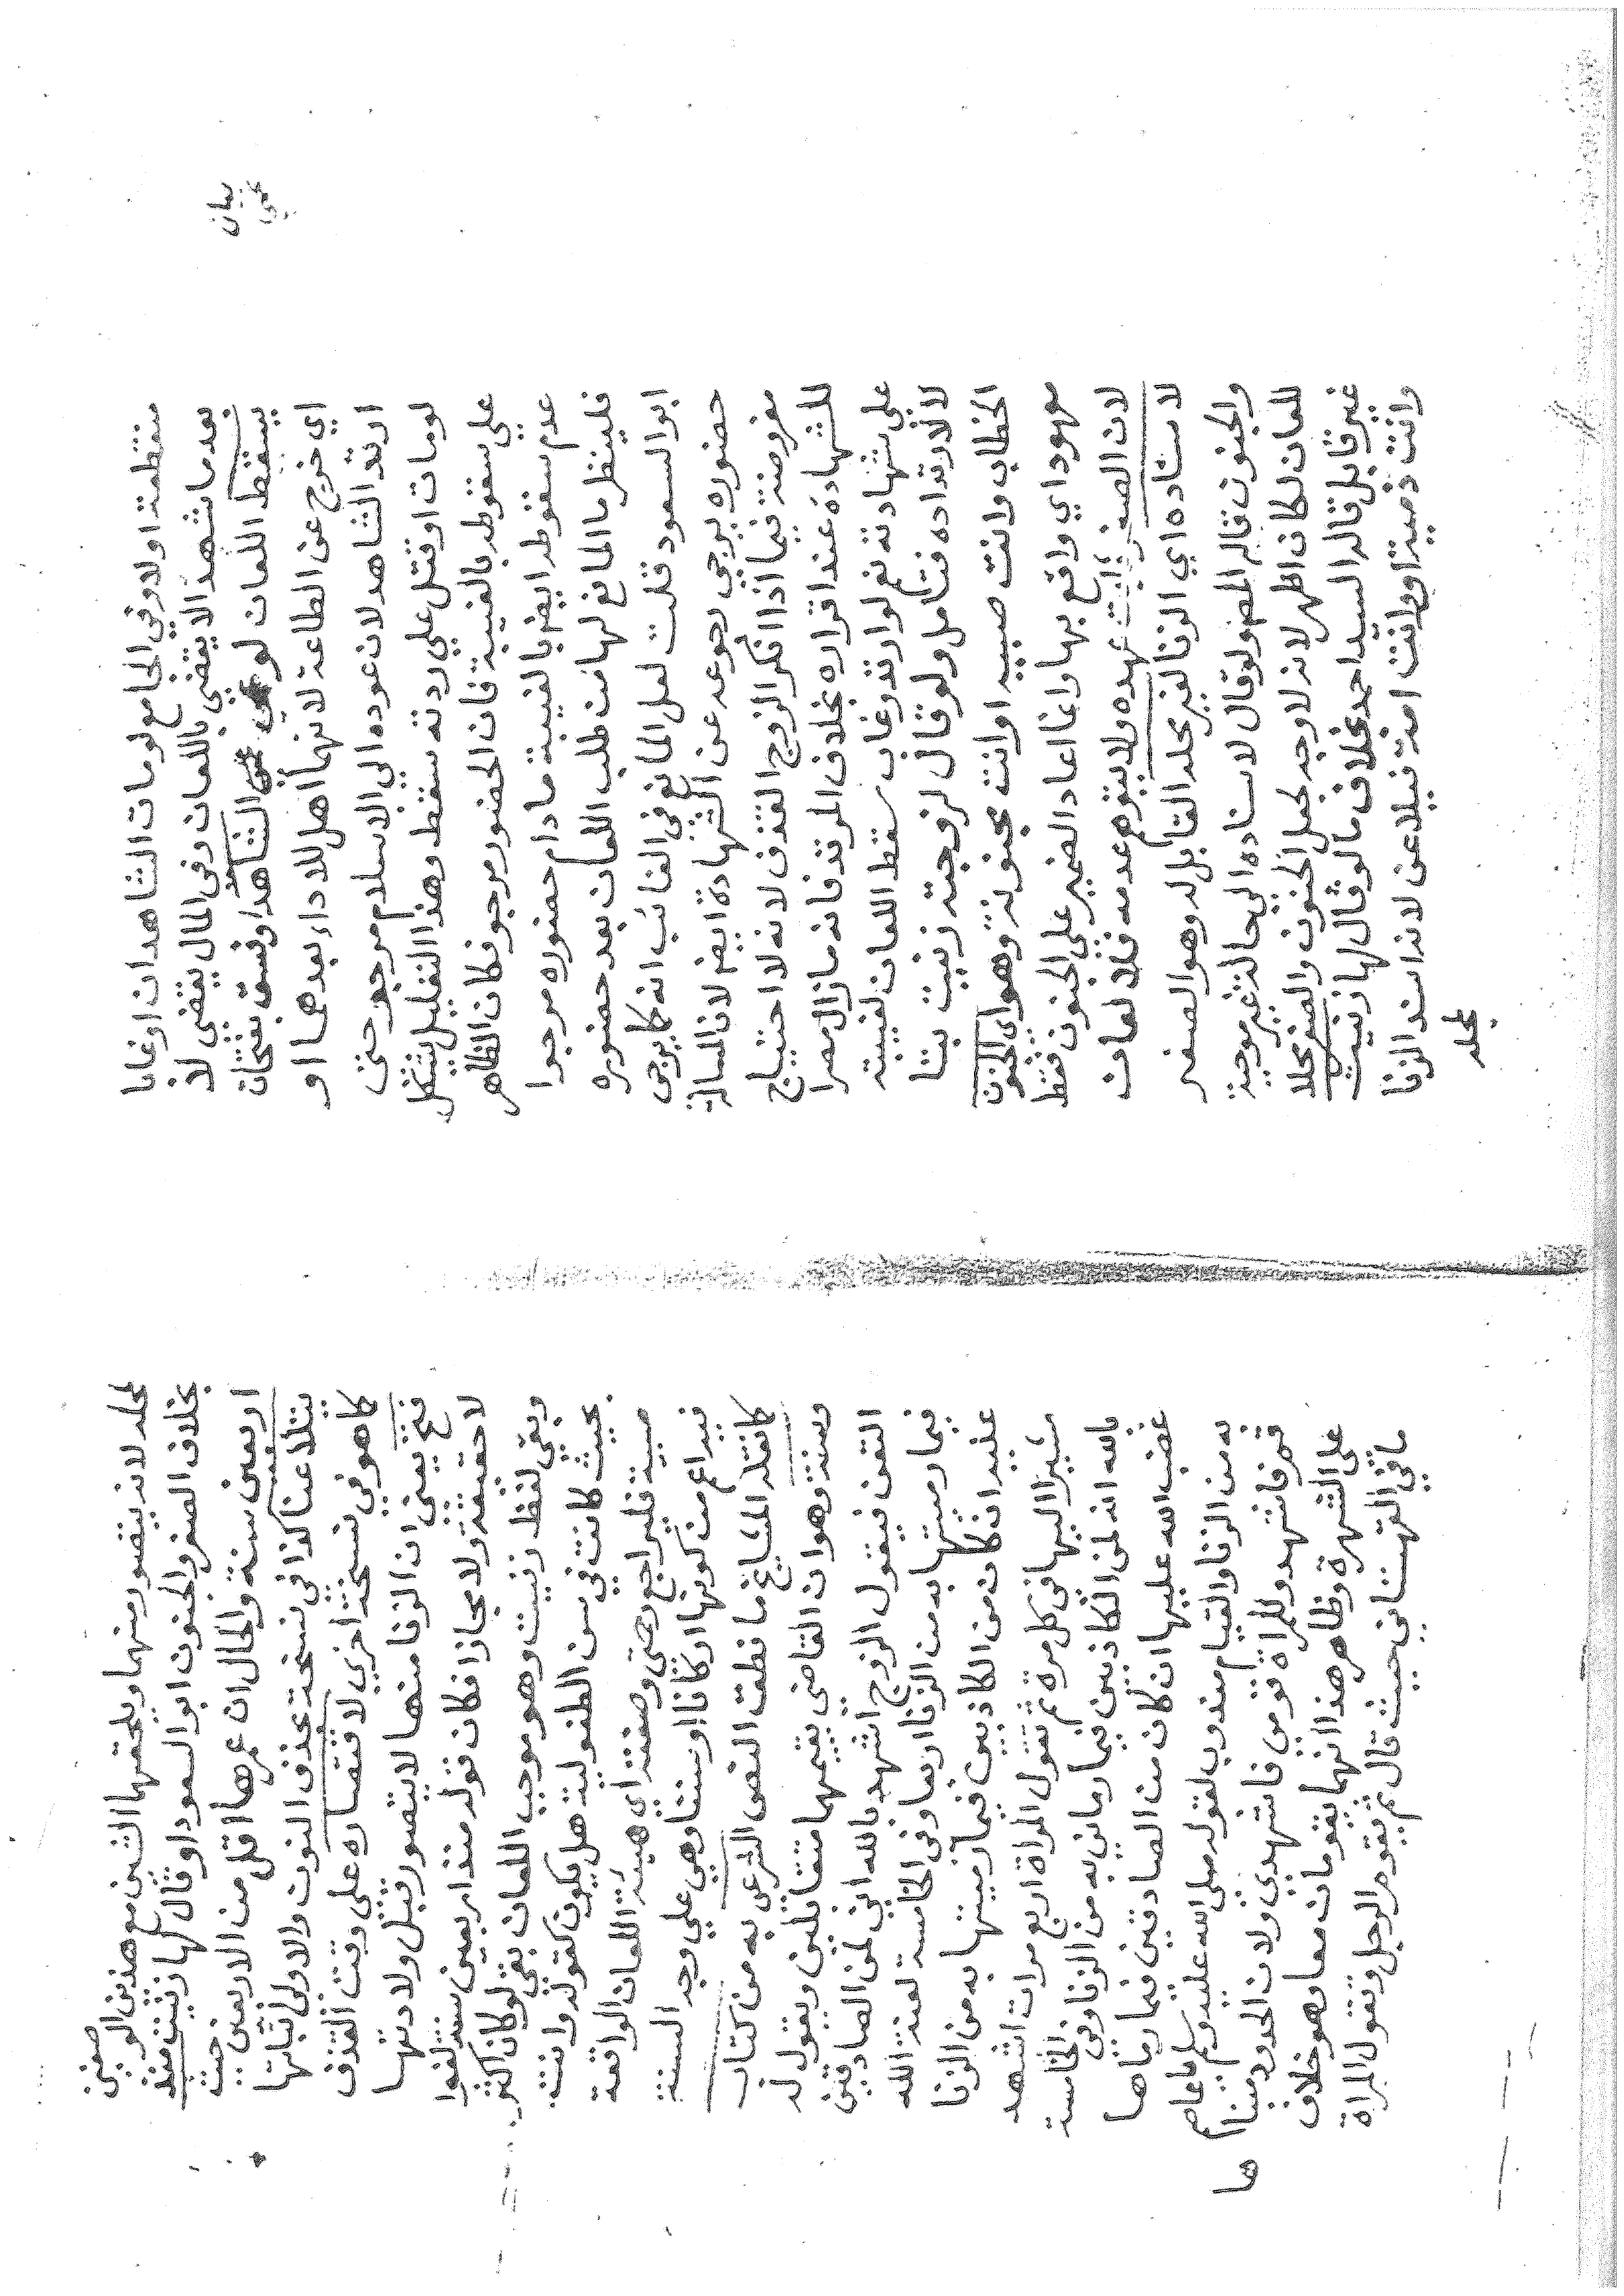 سقطة اولا وفي الجامع لو مات الشاهدان او غابا
بعد ما شهدا لا يقضى باللعان وفي المال يقضى لا
يسقط اللعان لو عمي الشاهد او فسق بفتحات
اي خرج عن الطاعة لانهما اهل للاداء بعدهما او
ارتد الشاهد لان عوده الى الاسلام مرجو حتى
لو مات او قتل على ردته سقط وهذا التعليل يشكل
على سقوطه بالغيبة فان الحضور مرجو فكان الظاهر
عدم سقوطه ايضا بالغيبة ما دام حضوره مرجوا
فلينظر ما المانع لها من طلب اللعان بعد حضوره
ابو السعود قلت لعل المانع في الغائب انه كما يرجى
حضوره يرجى رجوعه عن الشهادة ايضا لان المسالة
مفروضة فيما اذا انكر الزوج القذف لانه لا احتياج
للشهادة عند اقراره بخلاف المرتد فانه ما زال مصرا
على شهادته نعم لو ارتد وغاب سقط اللعان لغيبته
لا لارتداده فتأمل ولو قال لزوجته زنيت بتا
الخطاب وانت صبية او انت مجنونة وهو اي الجنون
معهود اي واقع بها وانما اعاد الضمير على الجنون فقط
لان الصغر ثابت عهده ولا يتوهم عدمه فلا لعان
لاسناده اي الزنا لغير محله القابل له وهو الصغر
والجنون قال المص ولو قال لاسناده الى حالة غير موجبة
للعان لكان اظهر لانه لا وجه لجعل الجنون والصغر محلا
غير قابل قاله السيد احمد بخلاف ما لو قال لها زنيت
وانت ذمية او وانت امة قبلا عن لانه اسند الزنا
لمحله
بيان
لمحله لانه يتصور منهما ويلحقهما الشين مع هذين الوصفين
بخلاف الصغر والجنون ابو السعود او قال لها زنيت منذ
اربعين سنة والحال ان عمرها اقل من الاربعين حيث
يتلاعنا كذا في نسخة بحذف النون والاولى اثباتها
كما هو في نسخة اخرى لاقتصاره على وقت القذف
فتح يعني ان الزنا منها لا يتصور قبل ولادتها
لا حقيقة ولا مجازا فكان قوله منذ اربعين سنة لغوا
وبقي لفظ زنيت وهو موجب اللعان بقي لو كان اكثر
بحيث كانت في سن الطفولية هل يكون كقوله وانت
صبية فليراجع رحمتي وصفته اي هيئة اللعان الواقعة
فيه اعم من كونها اركانا او سننا وهي على وجه السنة
كما نقله المشايخ ما نطق النص الشرعي به من كتاب
وسنة وهو ان القاضي يقيمهما متقابلين ويقول له
التعن فيقول الزوج اشهد بالله اني لمن الصادقين
فيما رميتها به من الزنا اربعا وفي الخامسة لعنة الله
عليه ان كان من الكاذبين فيما رميتها به من الزنا
مشيرا اليها في كل مرة ثم تقول المراة اربع مرات اشهد
بالله انه لمن الكاذبين فيما رماني به من الزنا وفي الخامسة
غضب الله عليها ان كان من الصادقين فيما رماها
به من الزنا والقيام مندوب لقوله صلى الله عليه وسلم لعاصم
قم فاشهد وللمراة قومي فاشهدي ولان الحدود مبناها
على الشهرة وظاهر هذا انهما يقومان معا وهو خلاف
ما في القهستاني حيث قال ثم يقوم الرجل وتقول المراة